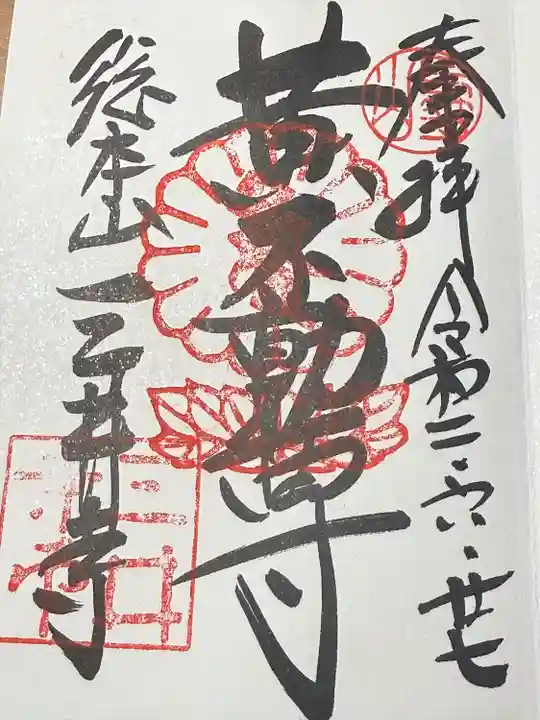 奉拝 令和二・六・廿七
黄不動尊
総本山 三井寺